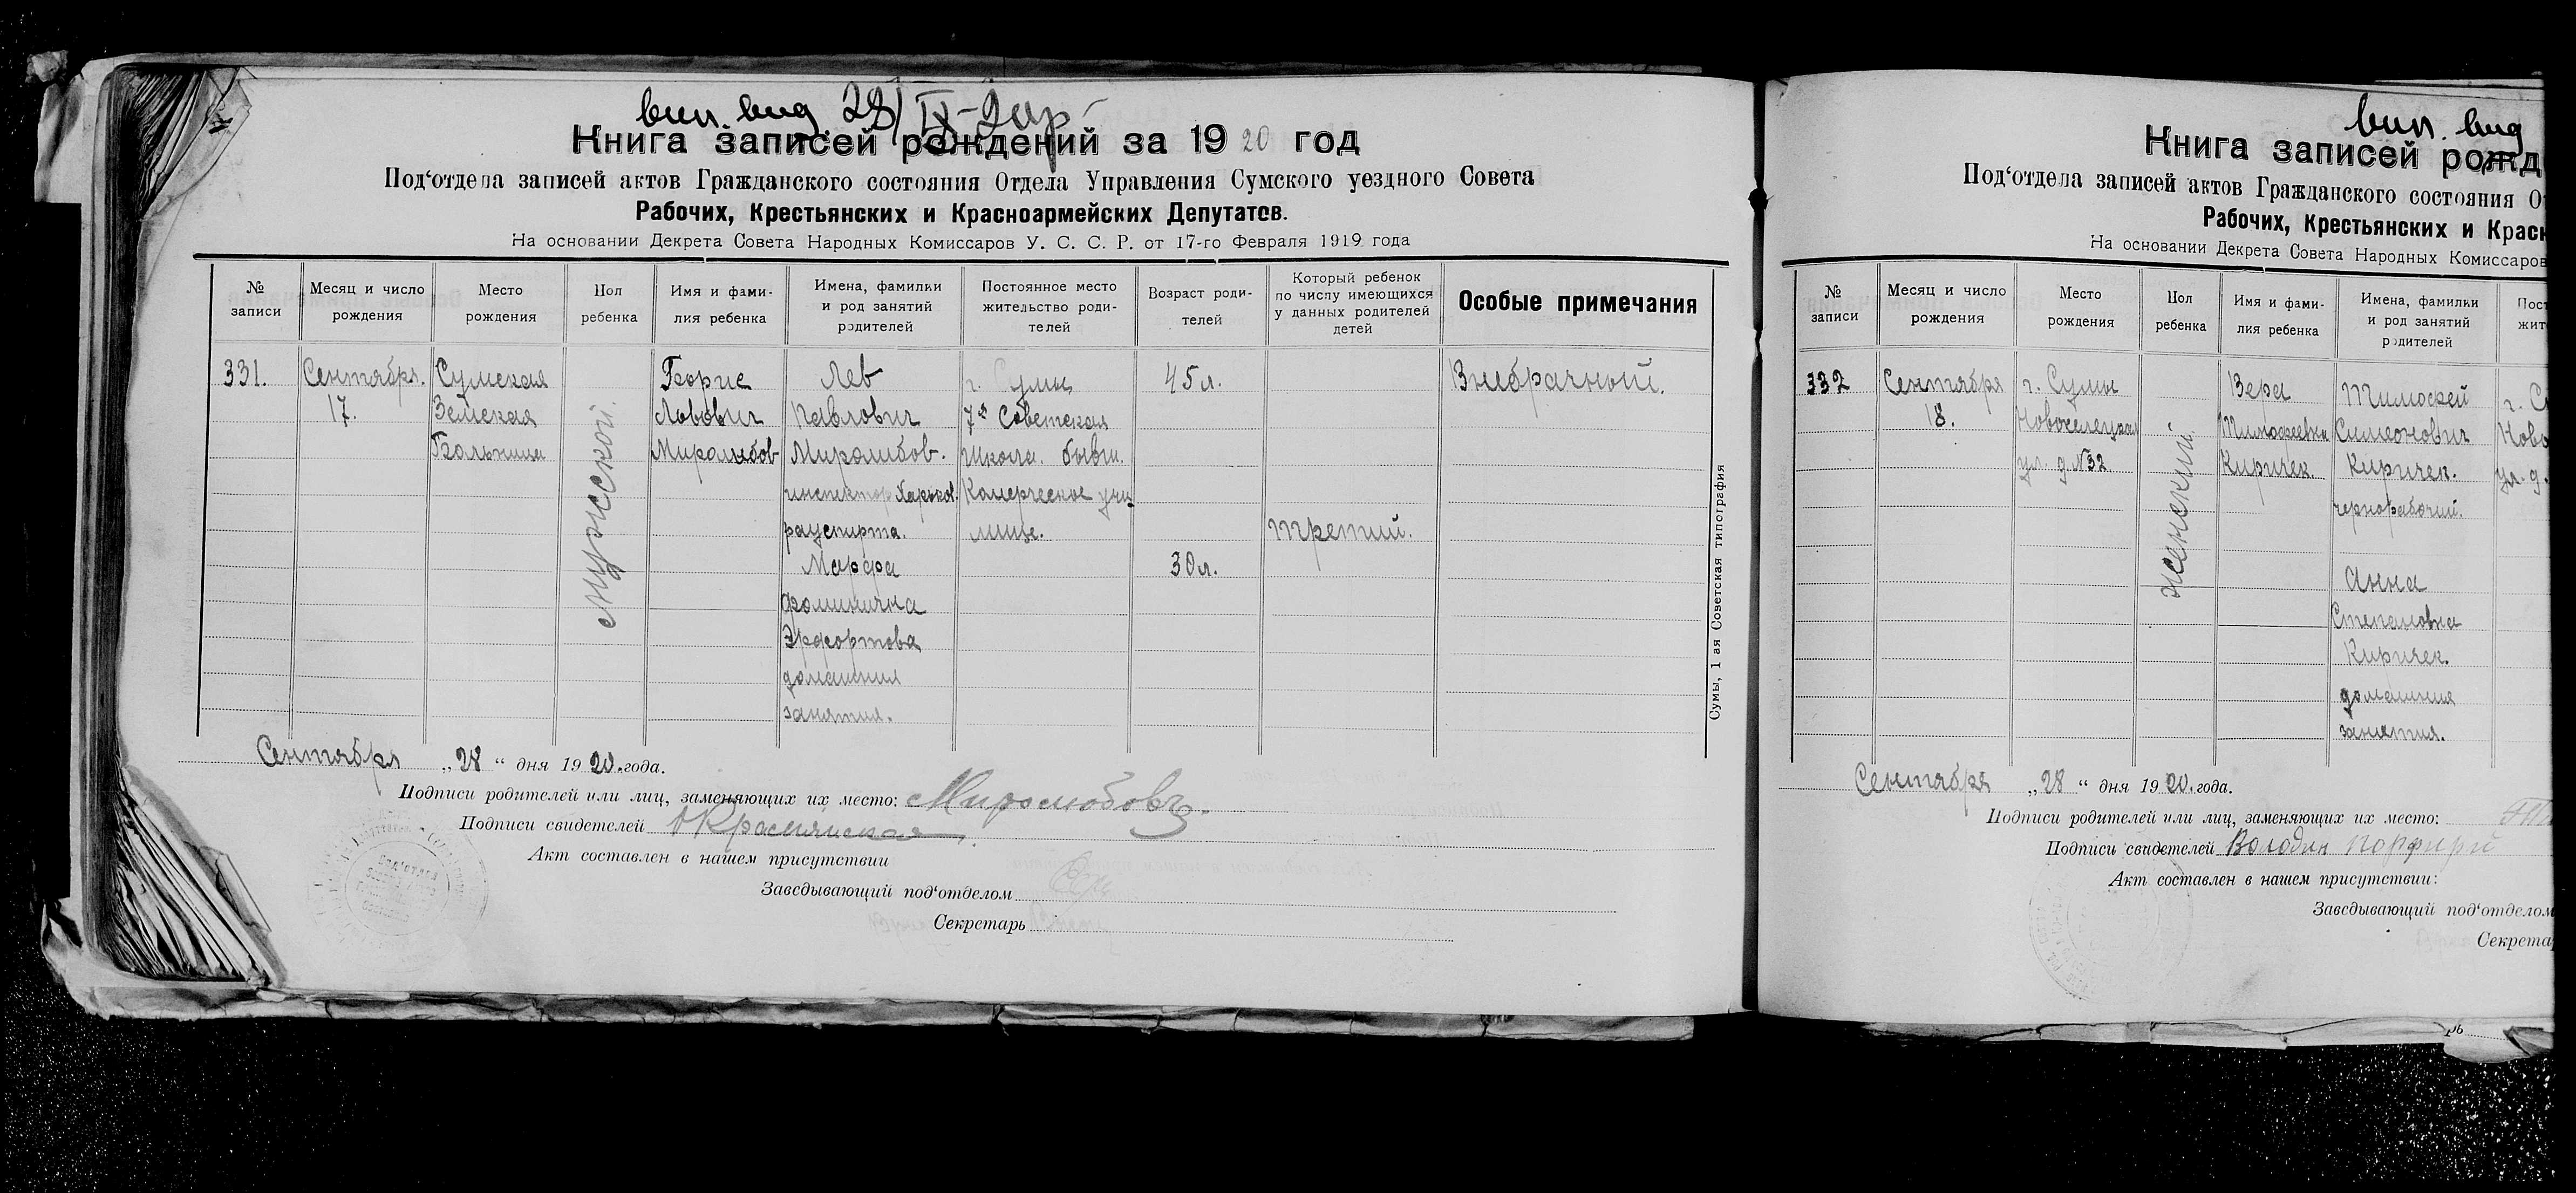 вип. вид. 28/IX-
Книга записей рождений за 1920 год
Под‘отдела записей актов Гражданского состояния Отдела Управления Сумского уездного Совета
Рабочих, Крестьянских и Красноармейских Депутатов.
На основании Декрета Совета Народных Комиссаров У. С. С. Р. от 17-го Февраля 1919 года
№ записи
Месяц и число рождения
Место рождения
Пол ребенка
Имя и фами-
лия ребенка
Имена, фамилии
и род занятий
родителей
Постоянное место
жительство роди-
телей
Возраст роди-
телей
Который ребенок
по числу имеющихся
у данных родителей
детей
Особые примечания
331.
Сентября.
17.
Сумская
Земская
Больница
Мужской.
Борис
Львович
Миролюбов
Лев
Павлович
Миролюбов.
инспектор Харьков.
рауспирта.
Марфа
Фоминична
Эрфортова
домашния
занятия.
г. Сумы
7я Советская
Школа. бывш.
Комерческое учи
лище.
45 л.
30 л.
третий.
Внебрачный.
Сумы, 1 ая Советская типография
Сентября „28“ дня 1920. года.
Подписи родителей или лиц, заменяющих их место: Миролюбовъ.
Подписи свидетелей
Акт составлен в нашем присутствии
Заведывающий под‘отделом
Секретарь
вип. вид
Книга записей рожд
Под‘отдела записей актов Гражданского состояния О
Рабочих, Крестьянских и Красн
На основании Декрета Совета Народных Комиссаров
№
записи
Месяц и число
рождения
Место
рождения
Пол
ребенка
Имя и фами-
лия ребенка
Имена, фамилии
и род занятий
родителей
Пост
жит
332
Сентября
18.
г. Сумы
Новоселецкая
ул. д. №32
женский.
Вера
Тимофеевна
Киричек.
Тимофей
Симеонович
Киричек.
чернорабочий.
Анна
Степановна
Киричек
домашния
занятия.
г. С
Ново
ул. д.
Сентября „28“ дня 1920. года.
Подписи родителей или лиц, заменяющих их место:
Подписи свидетелей Володин Порфирий
Акт составлен в нашем присутствии:
Заведывающий под‘отделом
Секрета